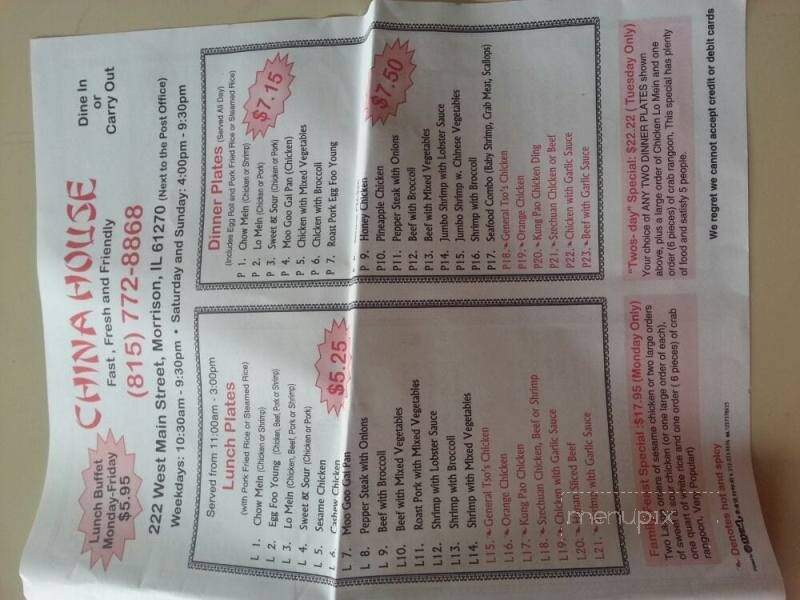 Lunch Buffet
Monday-Friday
$5.95
CHINA HOUSE
Fast , Fresh and Friendly
Dine In
or
Carry Out
(815) 772-8868
222 West Main Street, Morrison, IL 61270 (Next to the Post Office)
Weekdays: 10:30am - 9:30pm • Saturday and Sunday: 4:00pm - 9:30pm
Served from 11:00am - 3:00pm
Lunch Plates
(with Pork Fried Rice or Steamed Rice)
L 1. Chow Mein (Chicken or Shrimp)
L 2. Egg Foo Young (Chicken, Beef, Pork or Shrimp)
L 3. Lo Mein (Chicken, Beef, Pork or Shrimp)
L 4. Sweet & Sour (Chicken or Pork)
L 5. Sesame Chicken
L 6. Cashew Chicken
L 7. Moo Goo Gai Pan
$5.25
L 8. Pepper Steak with Onions
L 9. Beef with Broccoli
L10. Beef with Mixed Vegetables
L11. Roast Pork with Mixed Vegetables
L12. Shrimp with Lobster Sauce
L13. Shrimp with Broccoli
L14. Shrimp with Mixed Vegetables
L15. General Tso's Chicken
L16. Orange Chicken
L17. Kung Pao Chicken
L18. Szechuan Chicken, Beef or Shrimp
L19. Chicken with Garlic Sauce
L20. Sliced Beef
L21. with Garlic Sauce
Dinner Plates (Served All Day)
(Includes Egg Roll and Pork Fried Rice or Steamed Rice)
P 1. Chow Mein (Chicken or Shrimp)
P 2. Lo Mein (Chicken or Pork)
P 3. Sweet & Sour (Chicken or Pork)
P 4. Moo Goo Gai Pan (Chicken)
P 5. Chicken with Mixed Vegetables
P 6. Chicken with Broccoli
P 7. Roast Pork Egg Foo Young
$7.15
P 9. Honey Chicken
P10. Pineapple Chicken
P11. Pepper Steak with Onions
P12. Beef with Broccoli
P13. Beef with Mixed Vegetables
P14. Jumbo Shrimp with Lobster Sauce
P15. Jumbo Shrimp w. Chinese Vegetables
P16. Shrimp with Broccoli
P17. Seafood Combo (Baby Shrimp, Crab Meat, Scallops)
P18. General Tso's Chicken
P19. Orange Chicken
P20. Kung Pao Chicken Ding
P21. Szechuan Chicken or Beef
P22. Chicken with Garlic Sauce
P23. Beef with Garlic Sauce
$7.50
Family Special :$17.95 (Monday Only)
Two La orders of sesame chicken or two large orders
of sweet sour chicken (or one large order of each),
one quart of white rice and one order ( 6 pieces) of crab
rangoon. Very Popular)
Denotes hot and spicy
"Twos- day" Special: $22.22 ( Tuesday Only)
Your choice of ANY TWO DINNER PLATES shown
above, plus a large order of Chicken Lo Mein and one
order (6 pieces) of crab rangoon. This special has plenty
of food and satisfy 5 people.
We regret we cannot accept credit or debit cards
menupix